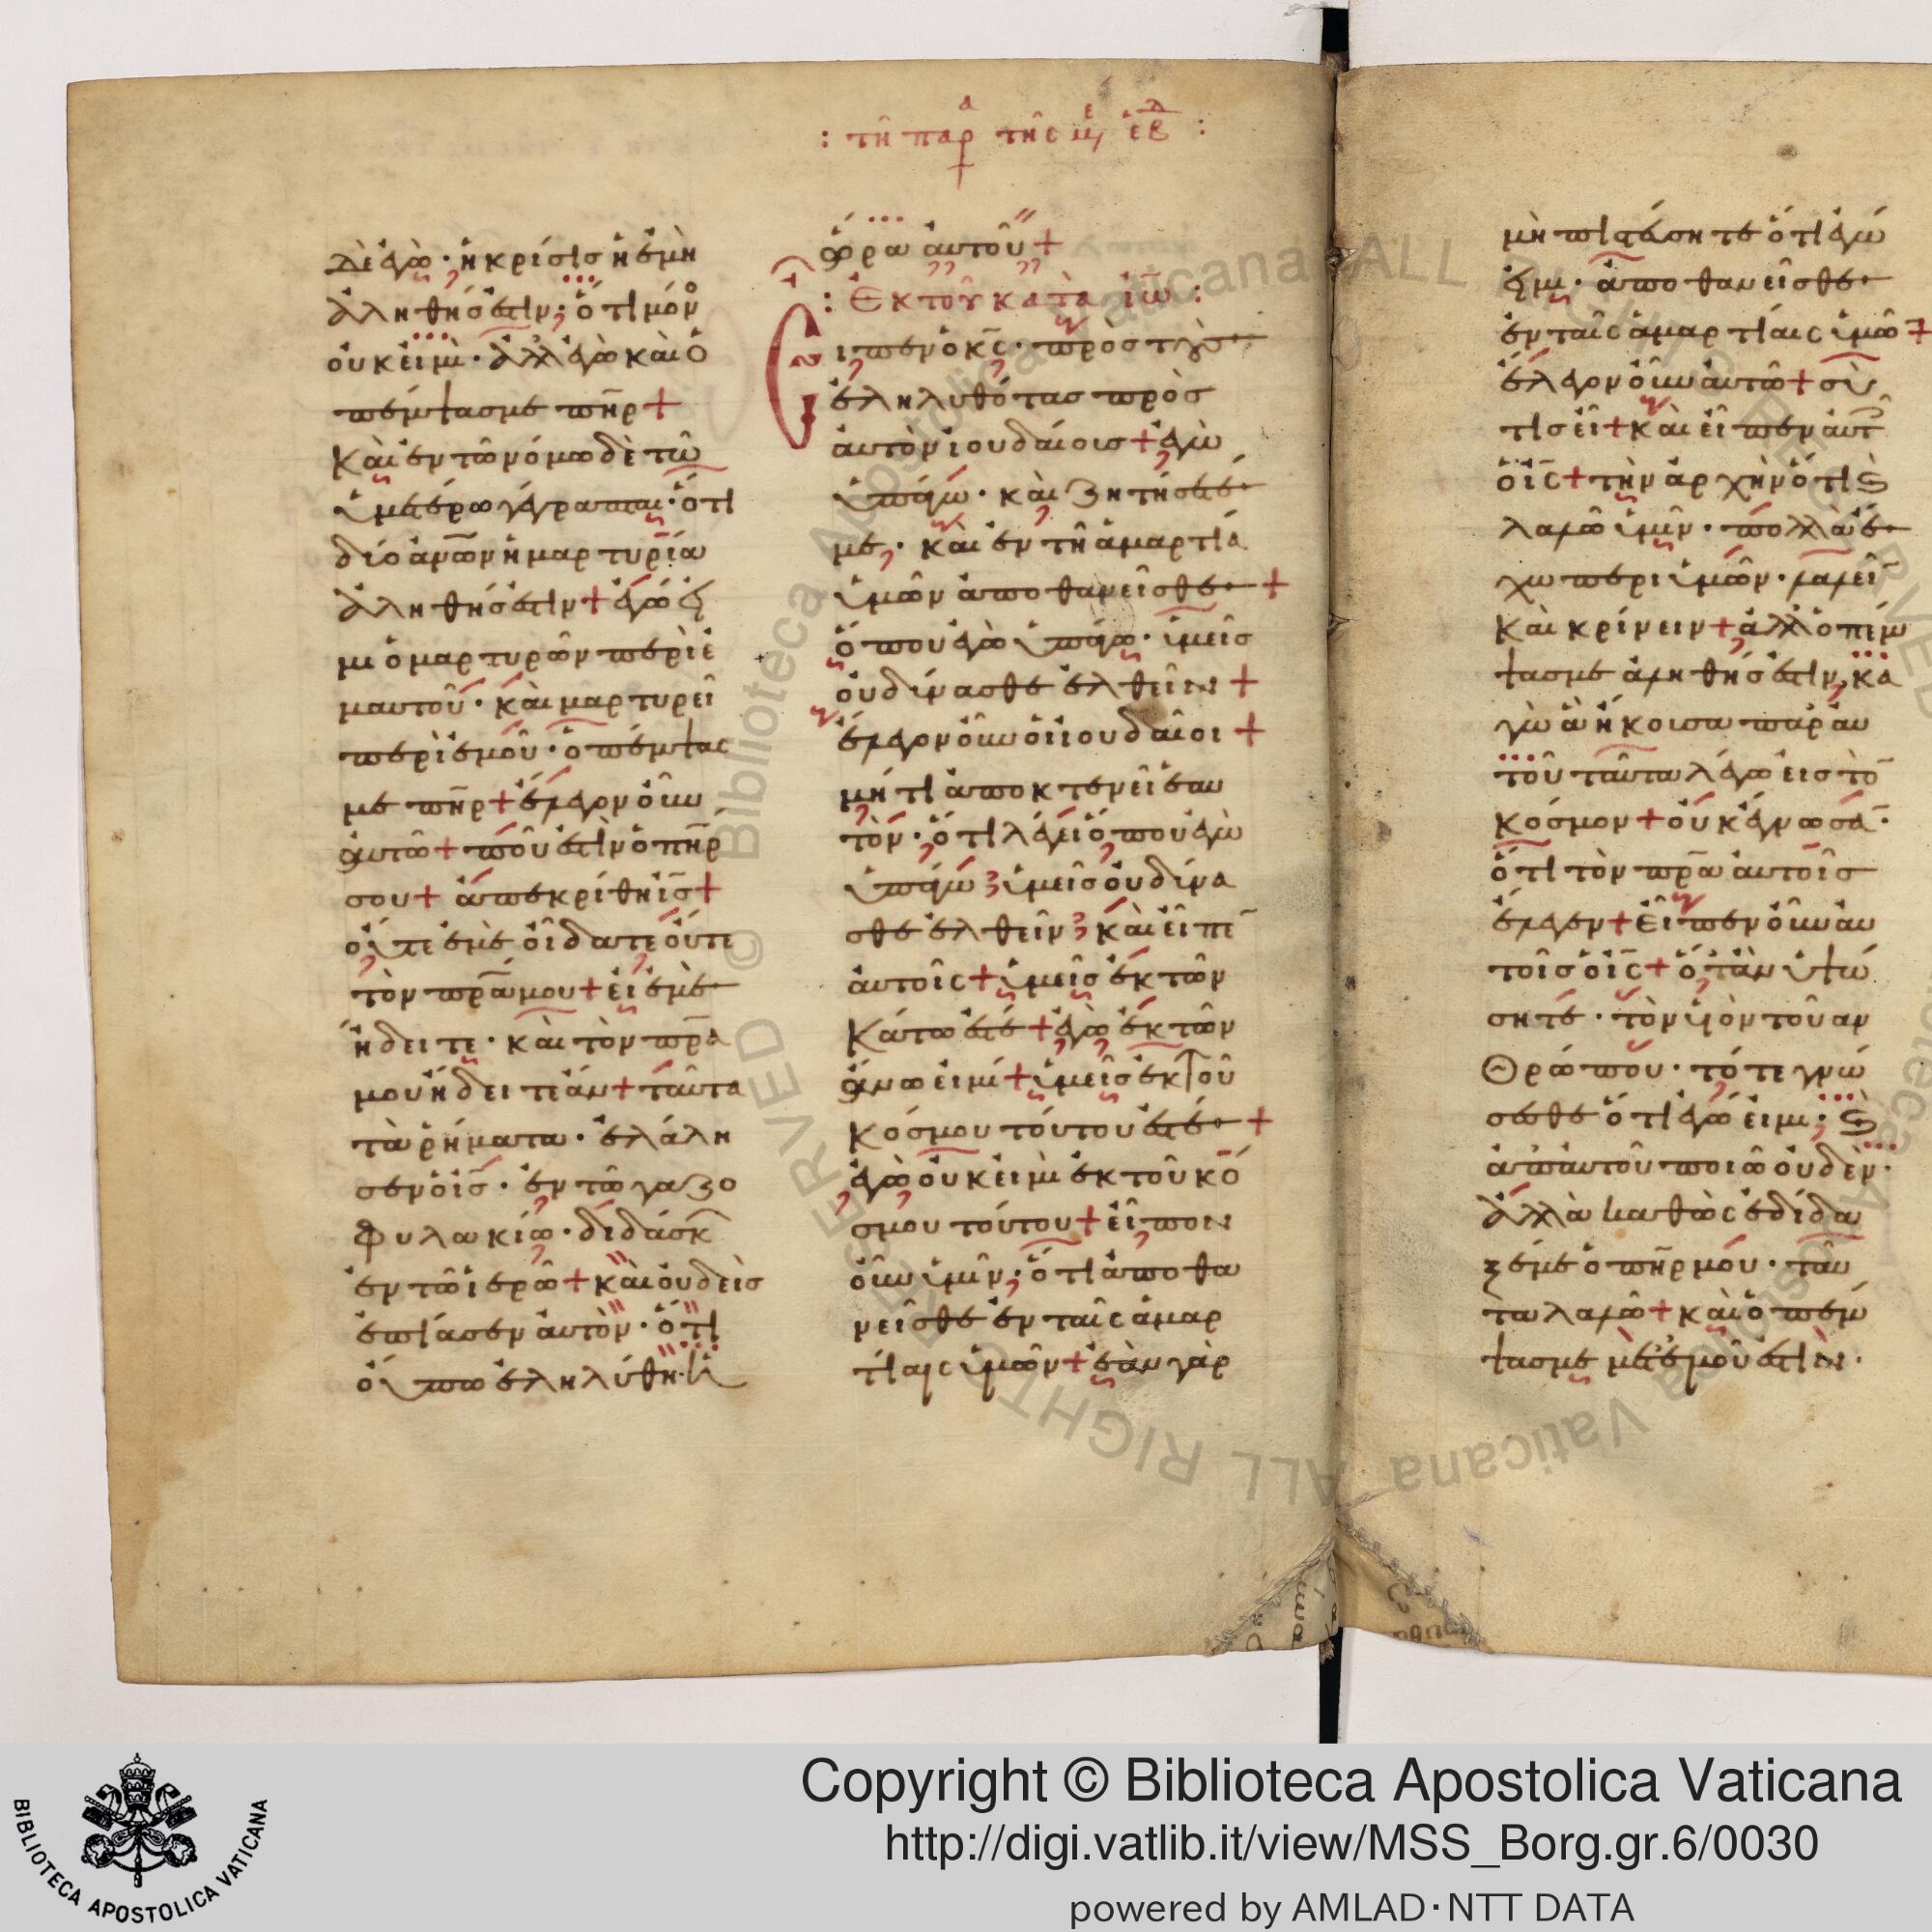 : τῆ παρ τῆς ε ἑβδ :
δὲ ἐγὼ· ἡ κρίσις ἡ ἐμὴ
ἀληθής ἐστιν· ὅτι μόν
οὐκ εἰμὶ· ἀλλ ἐγὼ καὶ ὁ
πέμψας με πηρ+
Καὶ ἐν τῶ νόμω δὲ τῶ
ὑμετέρω γέγραπται· ὅτι
δύο ἀνων ἡ μαρτυρία
ἀληθής ἐστιν+ ἐγώ εἰ
μι ὁ μαρτυρῶν περὶ ἐ
μαυτοῦ· καὶ μαρτυρεῖ
περὶ ἐμοῦ· ὁ πέμψας
με πηρ+ ἔλεγον οὖν
αὐτῶ+ ποῦ ἐστὶν ὁ πηρ
σου+ ἀπεκρίθη ις+
οὔτε ἐμὲ οἴδατε οὔτε
τὸν πρα μου+ εἰ ἐμὲ
ἤδειτε· καὶ τὸν πρα
μου ἤδειτε ἄν+ ταῦτα
τὰ ῥήματα· ἐλάλη
σεν ὁ ις· ἐν τῶ γαζο
φυλακίω· διδάσκ
ἐν τῶ ἱερῶ+ καὶ οὐδεὶς
ἐπίασεν αὐτὸν· ὅτι
οὔπω ἐληλύθη· ἡ
ὥρα αὐτοῦ+
: Ἐκ τοῦ κατὰ ἰω :
Εἶπεν ὁ κς· πρὸς τοὺς
ἐληλυθότας πρὸς
αὐτὸν ἰουδαίοις+ ἐγὼ
ὑπάγω· καὶ ζητήσετέ
με· καὶ ἐν τῆ ἁμαρτία
ὑμῶν ἀποθανεῖσθε+
ὅπου ἐγὼ ὑπάγω· ὑμεῖς
οὐ δύνασθε ἐλθεῖν+
ἔλεγον οὖν οἱ ἰουδαῖοι+
μήτι ἀποκτενεῖ ἑαυ
τόν· ὅτι λέγει ὅπου ἐγὼ
ὑπάγω ὑμεῖς οὐ δύνα
σθε ἐλθεῖν καὶ εἶπε
αὐτοῖς+ ὑμεῖς ἐκ τῶν
Κάτω ἐστέ+ ἐγὼ ἐκ τῶν
ἄνω εἰμί+ ὑμεῖς ἐκ τοῦ
Κόσμου τούτου ἐστέ+
ἐγὼ οὐκ εἰμὶ ἐκ τοῦ κό
σμου τούτου+ εἶπον
οὖν ὑμῖν· ὅτι ἀποθα
νεῖσθε ἐν ταῖς ἁμαρ
τίαις ὑμῶν+ ἐὰν γὰρ
μὴ πιστεύσητε ὅτι ἐγώ
εἰμι· ἀποθανεῖσθε
ἐν ταῖς ἁμαρτίαις ὑμῶ+
ἔλεγον οὖν αὐτῶ+ σὺ
τίς εἶ+ καὶ εἶπεν αὐτ
ὁ ις+ τὴν ἀρχὴν ὅτι ϗ
λαλῶ ὑμῖν· πολλὰ ἔ
χω περὶ ὑμῶν· λαλεῖ
Καὶ κρίνειν+ ἀλλ ὁ πέμ
ψας με ἀληθής ἐστιν, κα
γὼ ἃ ἤκουσα παρ αυ
τοῦ ταῦτα λέγω εἰς τὸ
κόσμον+ οὐκ ἔγνωσα·
ὅτι τὸν πρα αὐτοῖς
ἔλεγεν+ εἶπεν οὖν αὐ
τοῖς ὁ ις+ ὅταν ὑψώ
σητέ· τὸν υἱὸν τοῦ αν
Θρώπου· τότε γνώ
σεσθε ὅτι ἐγώ εἰμι· ϗ
ἀπ αὐτοῦ ποιῶ οὐδὲν·
ἀλλὰ καθὼς ἐδίδα
ξέ με ὁ πηρ μου· ταῦ
τα λαλῶ+ καὶ ὁ πέμ
ψας με μετ ἐμοῦ ἐστὶν·
Biblioteca Apostolica Vaticana ALL RIGHTS RESERVED ©
BIBLIOTECA APOSTOLICA VATICANA
Copyright © Biblioteca Apostolica Vaticana
http://digi.vatlib.it/view/MSS_Borg.gr.6/0030
powered by AMLAD·NTT DATA